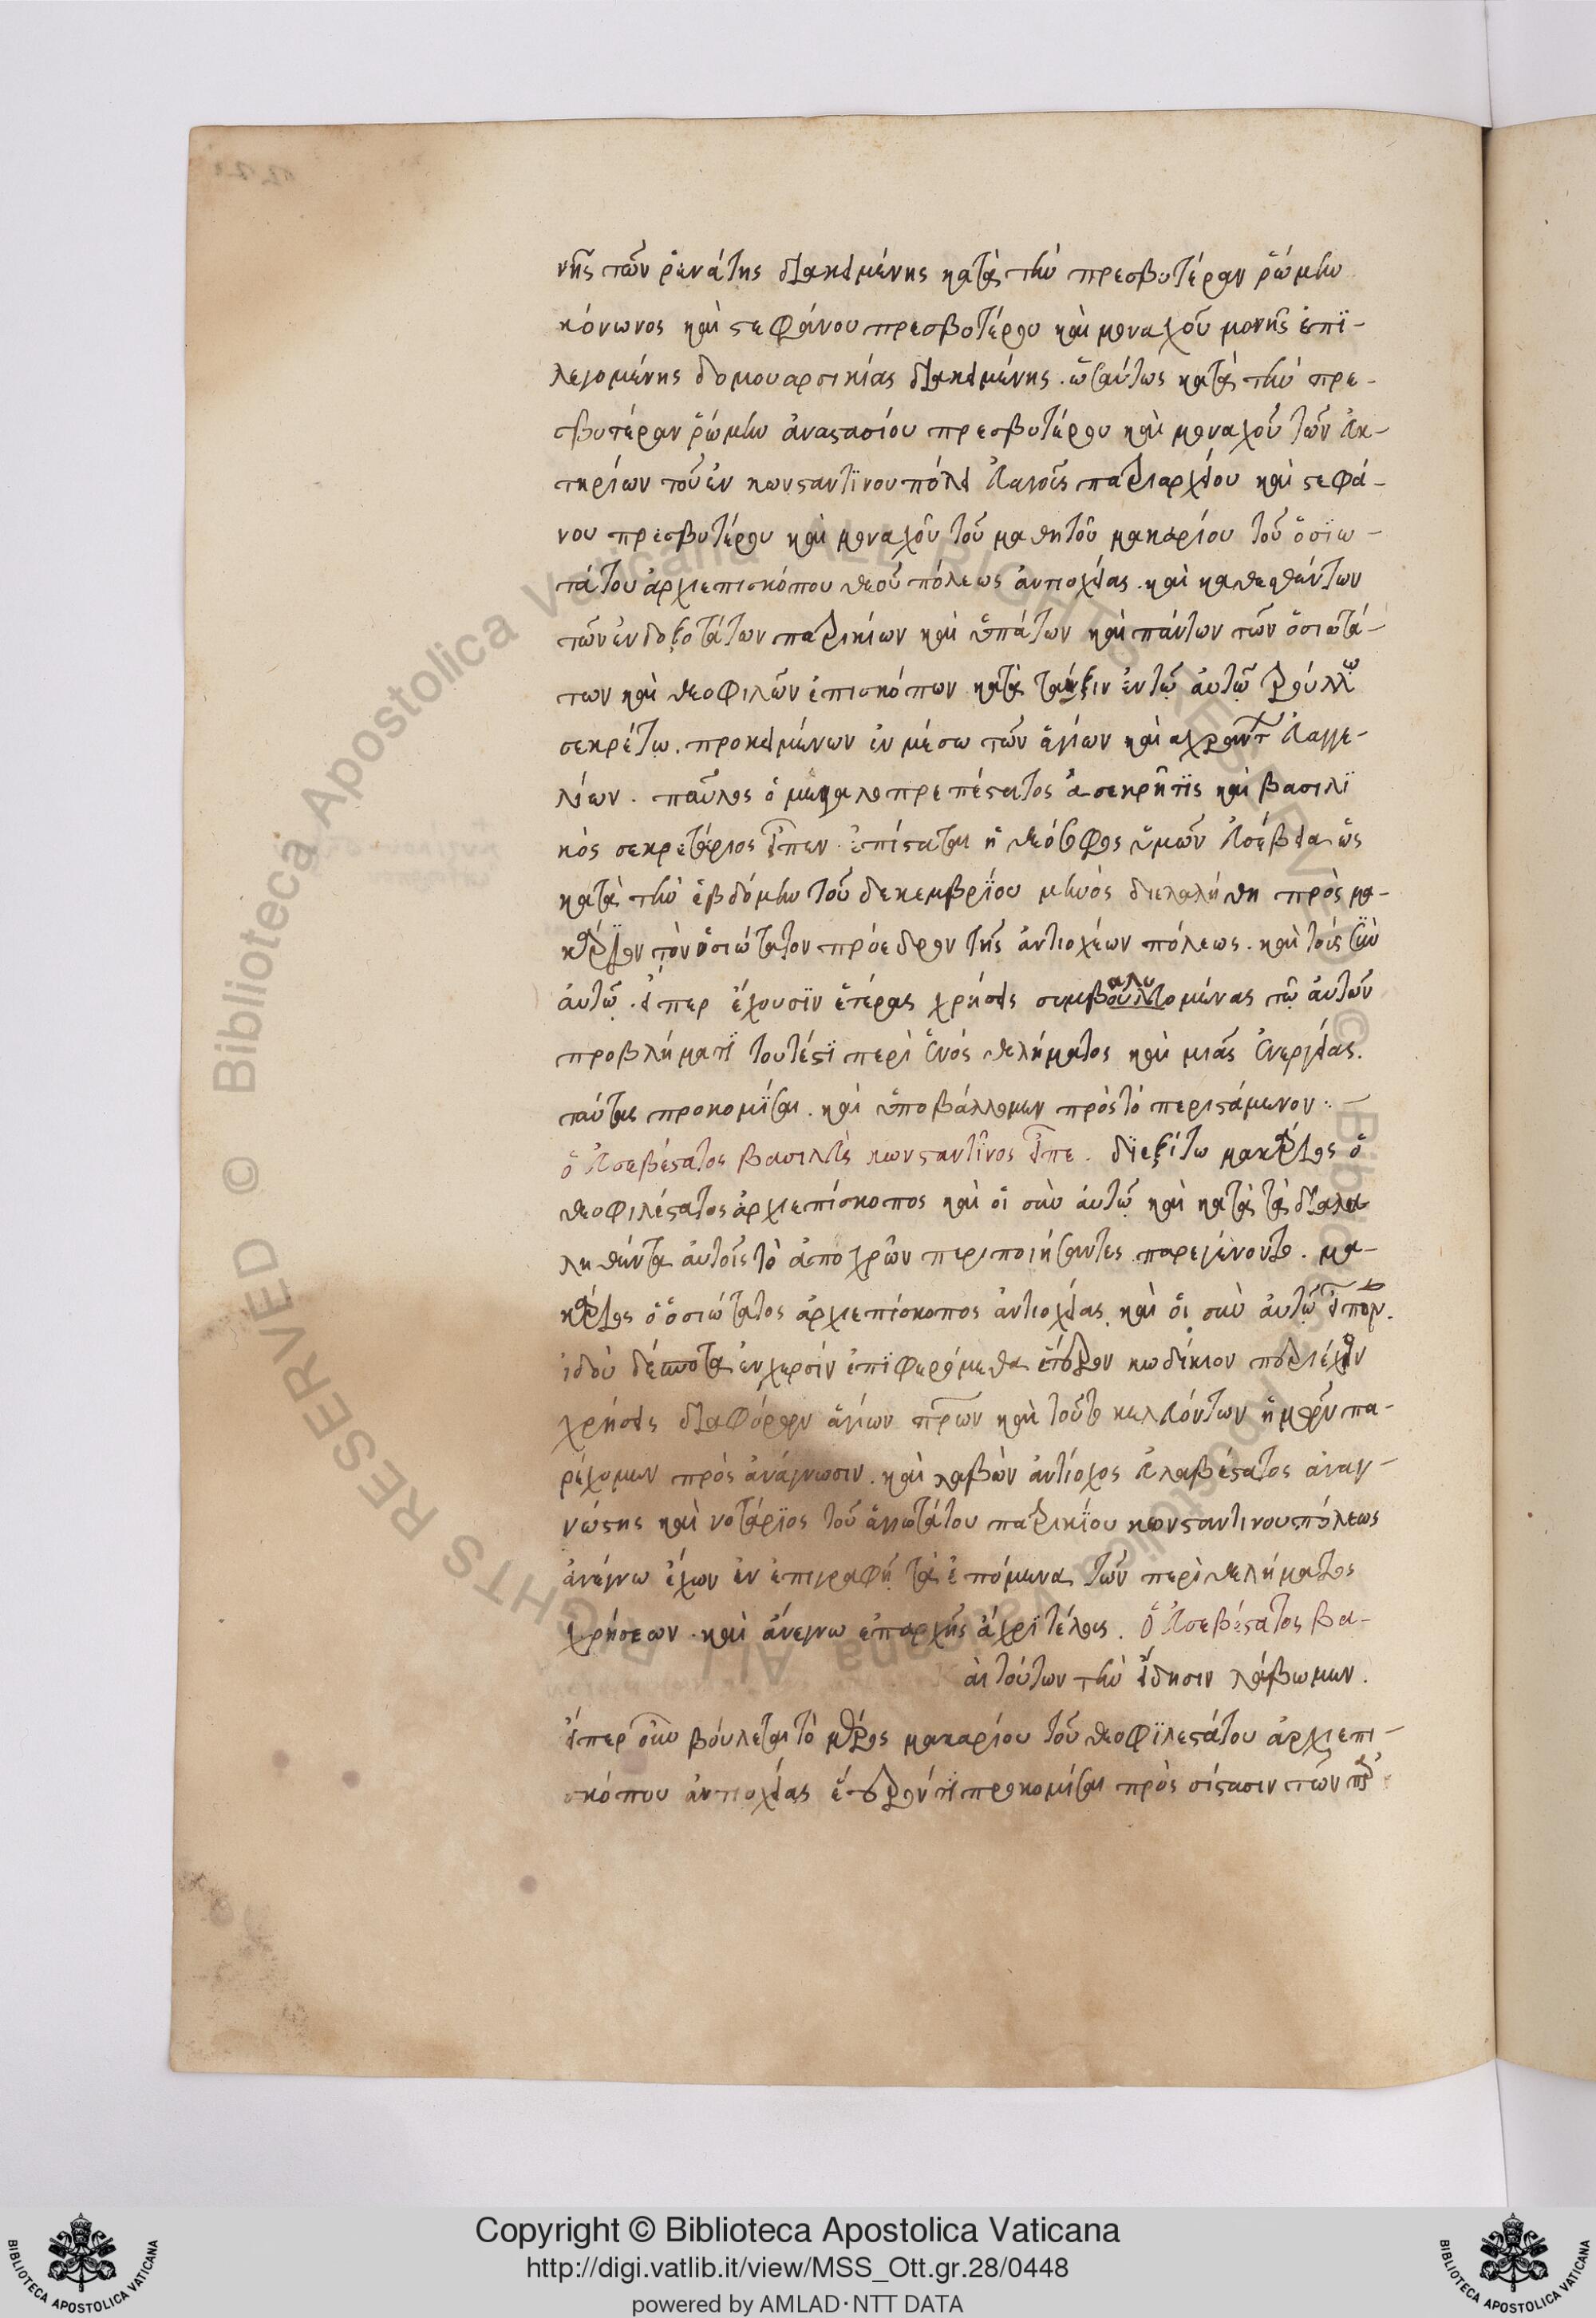 νῆς τῶν ῥενάτης διακειμένης κατὰ τὴν πρεσβυτέραν ῥώμην
κόνωνος καὶ στεφάνου πρεσβυτέρου καὶ μοναχοῦ μονῆς ἐπϊ-
λεγομένης δομουαρσικίας διακειμένης. ὡσαύτως κατὰ τὴν πρε-
σβυτέραν ῥώμην ἀναστασίου πρεσβυτέρου καὶ μοναχοῦ τῶν εὐκ-
τηρίων τοῦ ἐν κωνσταντϊνουπόλει εὐαγοῦς πατριαρχείου καὶ στεφά-
νου πρεσβυτέρου καὶ μοναχοῦ τοῦ μαθητοῦ μακαρίου τοῦ ὁσϊω-
τάτου ἀρχιεπισκόπου θεοῦ πόλεως ἀντιοχείας. καὶ καθεσθέντων
τῶν ἐνδοξοτάτων πατρικίων καὶ ὑπάτων καὶ πάντων τῶν ὁσιωτά-
των καὶ θεοφιλῶν ἐπισκόπων κατὰ τάξιν ἐν τῷ αὐτῷ τρούλλω
σεκρέτω. προκειμένων ἐν μέσω τῶν ἁγίων καὶ αχράντ εὐαγγε-
λίων. παῦλος ὁ μεγαλοπρεπέστατος ἀσεκρῆτϊς καὶ βασιλϊ
κός σεκρετάριος εἶπεν ἐπίσταται ἡ θεόσοφος ὑμῶν εὐσέβεια ὡς
κατὰ τὴν ἑβδόμην τοῦ δεκεμβρϊου μηνός διελαλήθη πρὸς μα-
κάρϊον τὸν ὁσιώτατον πρόεδρον τῆς ἀντιοχέων πόλεως. καὶ τοὺς σὺν
αὐτῷ. εἴπερ ἔχουσϊν ἑτέρας χρήσεις συμβαλλομένας τῷ αὐτῶν
προβλήματϊ τουτέστϊ περὶ ἑνός θελήματος καὶ μιᾶς ἐνεργείας.
ταύτας προκομίσαι. καὶ ὑποβάλλομεν πρὸς τὸ περιστάμενον :-
ὁ εὐσεβέστατος βασιλεὺς κωνσταντῖνος εἶπε. δϊεξίτω μακάριος ὁ
θεοφιλέστατος ἀρχιεπίσκοπος καὶ οἱ σὺν αὐτῷ καὶ κατὰ τὰ διαλα
ληθέντα αὐτοῖς τὸ ἀποχρῶν περιποιήσαντες παρεγένοντο. μα-
κάριος ὁ ὁσιώτατος ἀρχιεπίσκοπος ἀντιοχείας καὶ οἱ σὺν αὐτῷ εἶπον.
ἰδοὺ δέσποτα ἐν χερσίν ἐπϊφερόμεθα ἕτερον κωδίκιον περιέχον
χρήσεις διαφόρων ἁγίων πρων καὶ τοῦτο κελευόντων ἡμῶν πα-
ρέχομεν πρὸς ἀνάγνωσιν. καὶ λαβὼν ἀντίοχος εὐλαβέστατος ἀναγ-
νώστης καὶ νοτάρϊος τοῦ ἁγιωτάτου πατρικϊου κωνσταντινουπόλεως
ἀνέγνω ἔχων ἐν ἐπιγραφῇ τὰ ἑπόμενα τῶν περὶ θελήματος
χρήσεων. καὶ ἀνέγνω ἐπαρχῆς ἄχρϊ τέλους. ὁ εὐσεβέστατος βα-
αι τούτων τὴν εἴδησιν λάβωμεν.
εἴπερ οὖν βούλεται τὸ μέρος μακαρίου τοῦ θεοφϊλεστάτου ἀρχιεπι-
σκόπου ἀντιοχείας ἕτερόν τϊ προκομίσαι πρὸς σύστασιν τῶν
Copyright © Biblioteca Apostolica Vaticana
http://digi.vatlib.it/view/MSS_Ott.gr.28/0448
powered by AMLAD·NTT DATA